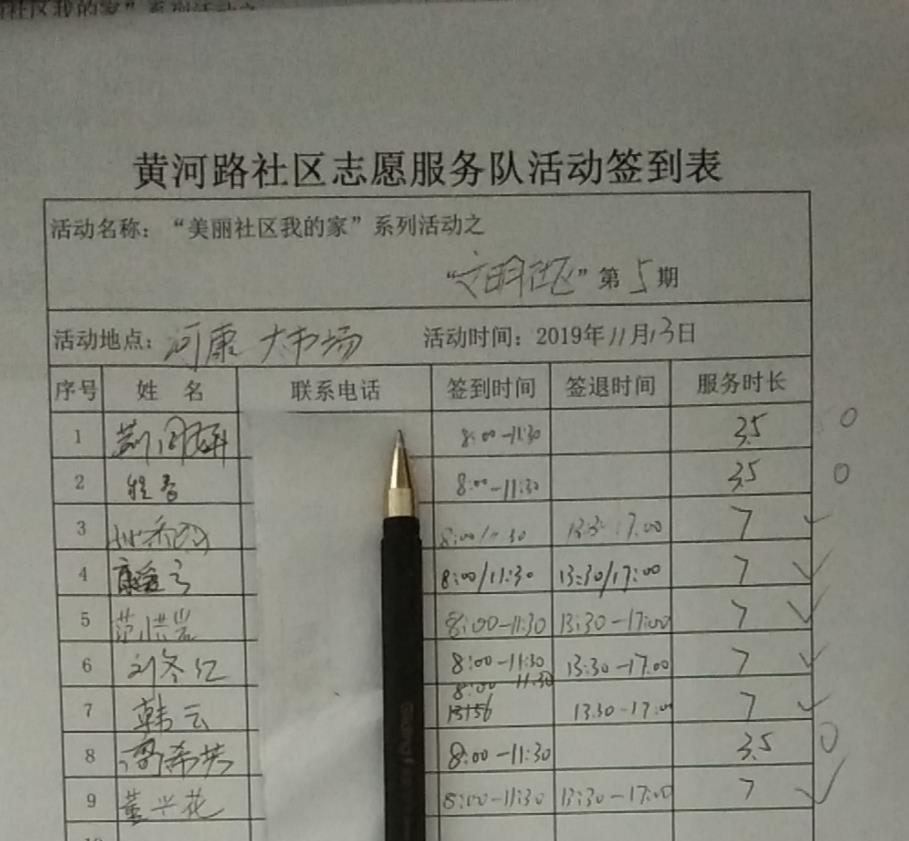 社区我的家”系列活动之
黄河路社区志愿服务队活动签到表
活动名称：“美丽社区我的家”系列活动之
“文明社区”第5期
活动地点：河康大市场 活动时间：2019年11月13日
序号 姓名 联系电话 签到时间 签退时间 服务时长
1 8:00-11:30 3.5 0
2 8:00-11:30 3.5 0
3 8:00/11:30 13:30 17:00 7
4 康爱云 8:00/11:30 13:30/17:00 7
5 范洪岩 8:00-11:30 13:30-17:00 7
6 刘冬红 8:00-11:30 13:30-17:00 7
8:00 11:30
7 韩云 13:30-17:00 7
8 高希芳 8:00-11:30 3.5 0
9 董兴花 8:00-11:30 13:30-17:00 7